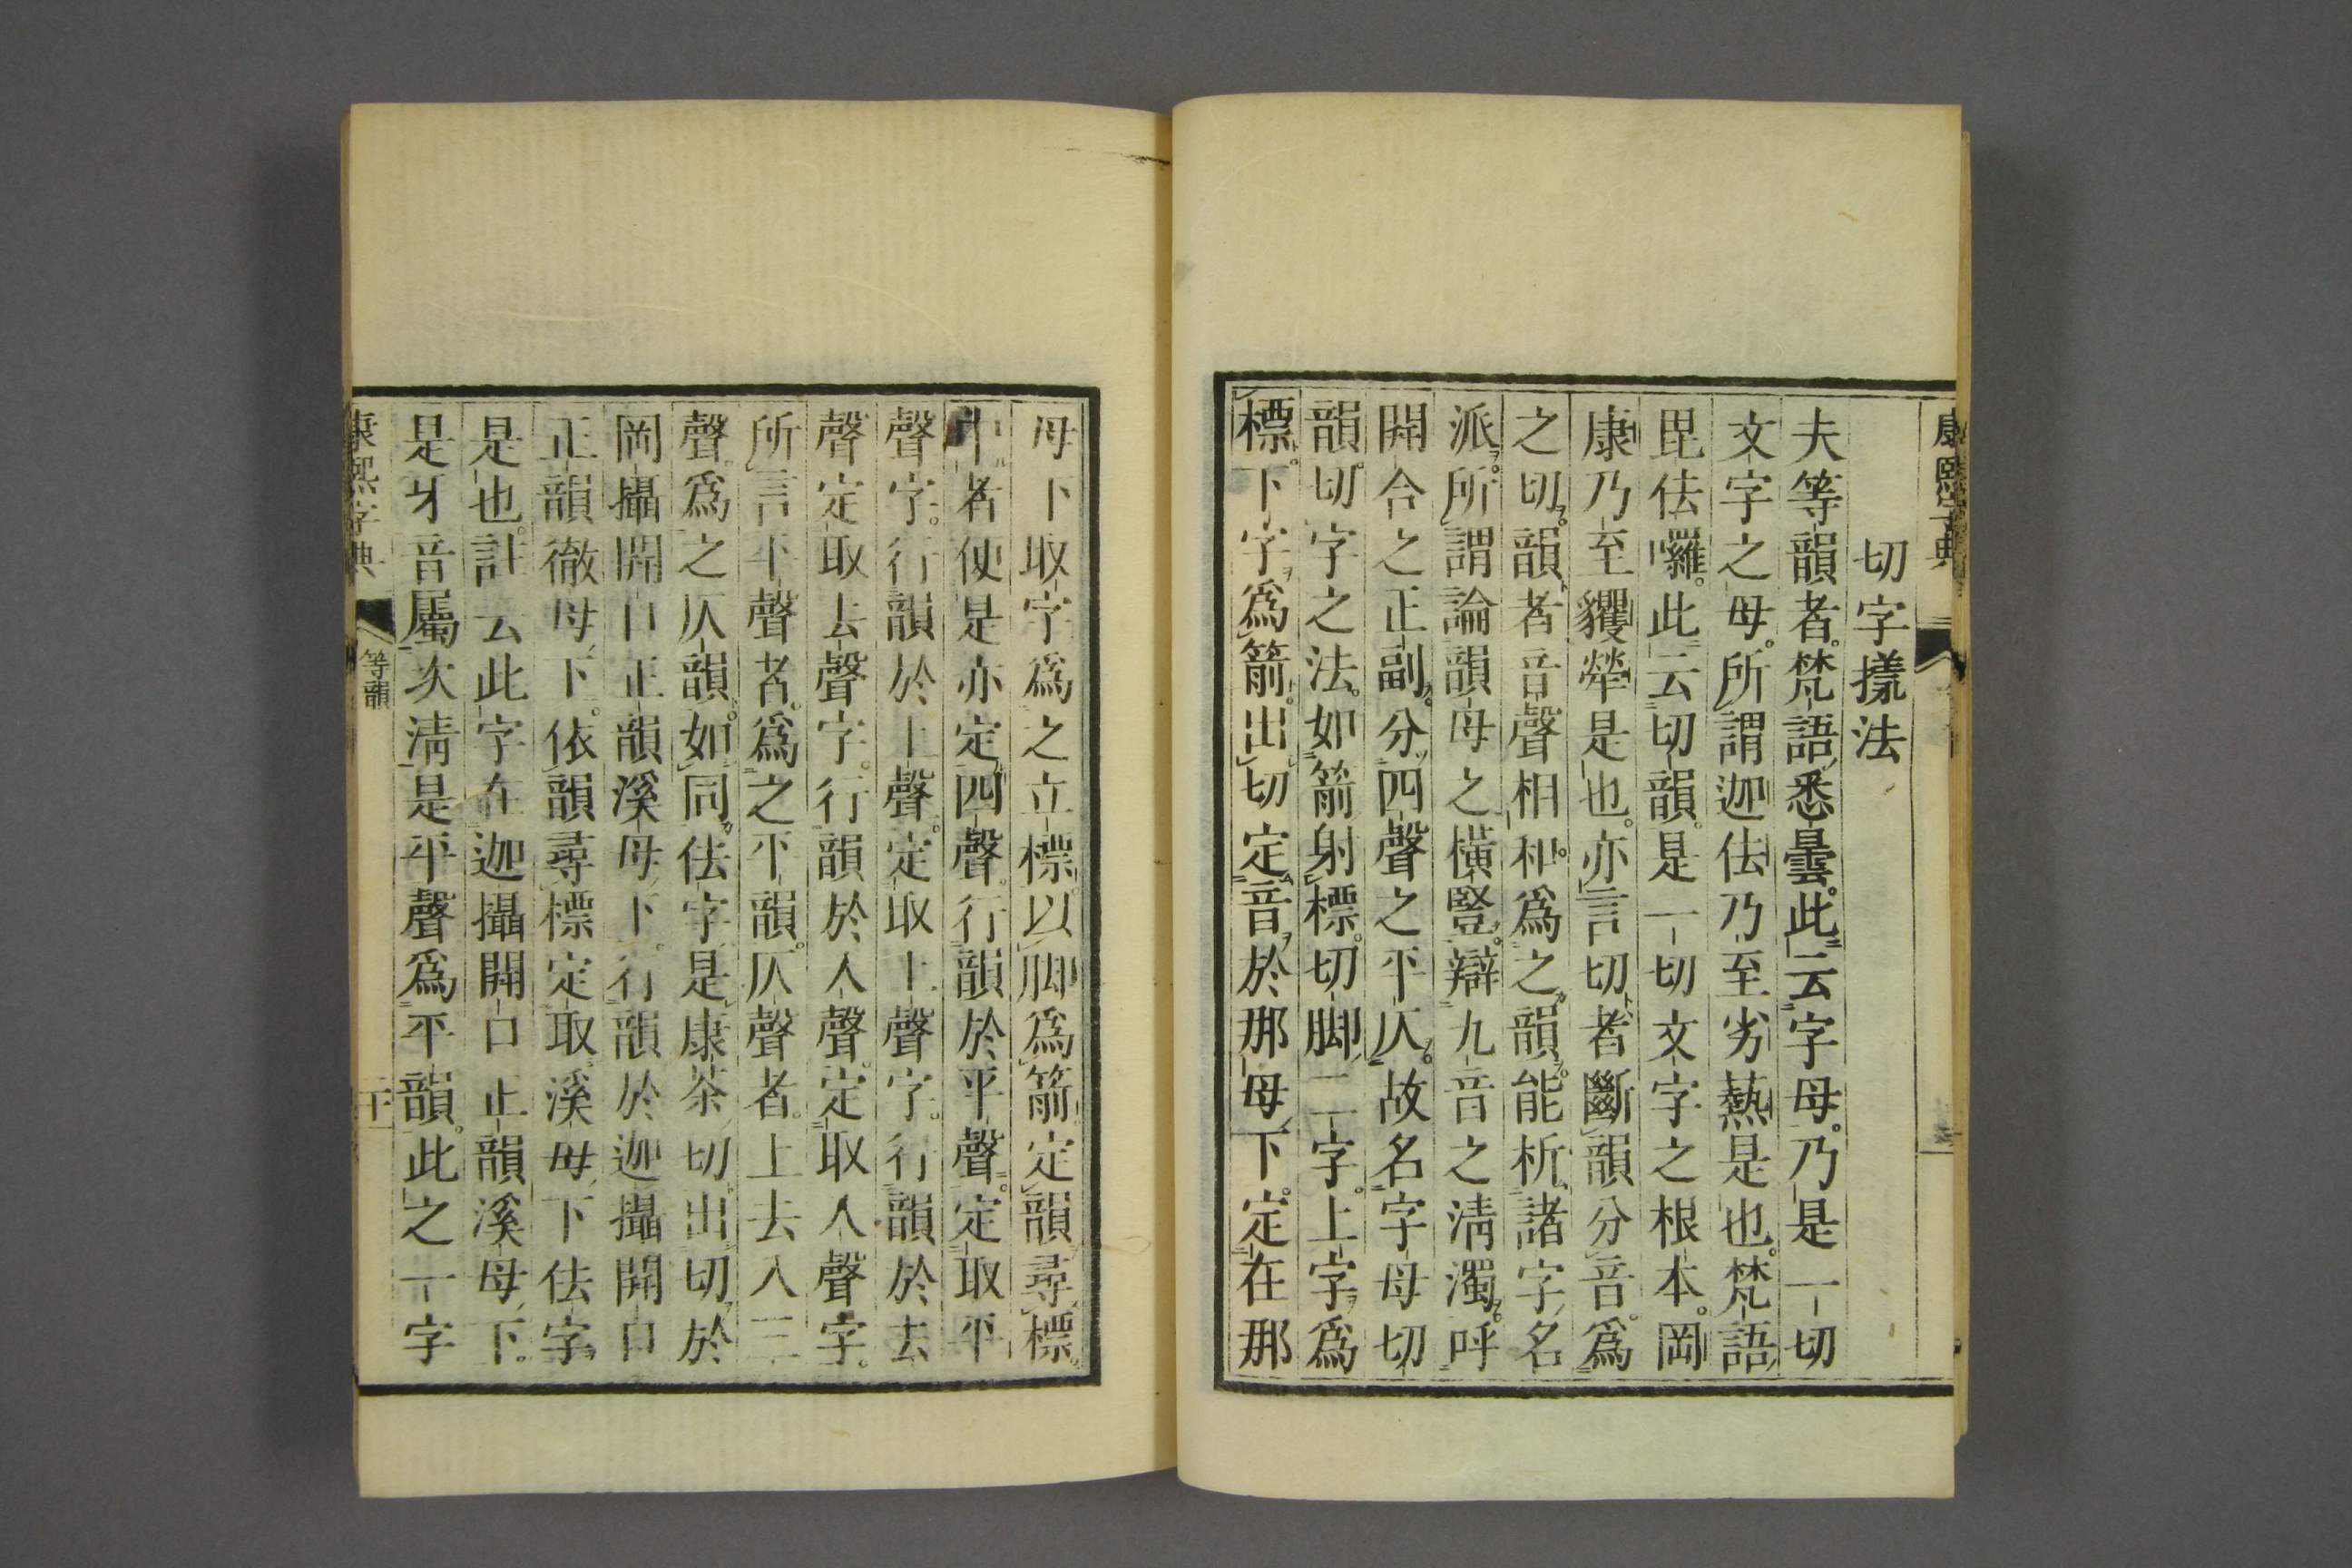 康熙字典
切字㨾法
夫等韻者梵語悉曇此云字母乃是一切
文字之母所謂迦佉乃至劣熱是也梵語
毘佉囉此云切韻是一切文字之根本岡
康乃至玃犖是也亦言切者斷韻分音爲
之切韻者音聲相和爲之韻能析諸字名
派所謂論韻母之橫豎辯九音之清濁呼
開合之正副分四聲之平仄故名字母切
韻切字之法如箭射標切脚二字上字爲
標下字爲箭出切定音於那母下定在那
母下取字爲之立標以脚爲箭定韻尋標
中者便是亦定四聲行韻於平聲定取平
聲字行韻於上聲定取上聲字行韻於去
聲定取去聲字行韻於入聲定取入聲字
所言平聲者爲之平韻仄聲者上去入三
聲爲之仄韻如同佉字是康茶切出切於
岡攝開口正韻溪母下行韻於迦攝開口
正韻徹母下依韻尋標定取溪母下佉字
是也註云此字在迦攝開口正韻溪母下
是牙音屬次清是平聲爲平韻此之一字
康熙字典
等韻